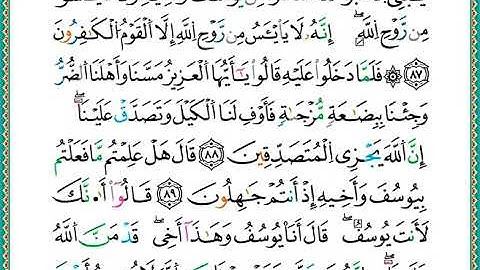 مِن رَّوْحِ ٱللَّهِ ۖ إِنَّهُۥ لَا يَا۟يْـَٔسُ مِن رَّوْحِ ٱللَّهِ إِلَّا ٱلْقَوْمُ ٱلْكَـٰفِرُونَ
﴿٨٧﴾ فَلَمَّا دَخَلُوا۟ عَلَيْهِ قَالُوا۟ يَـٰٓأَيُّهَا ٱلْعَزِيزُ مَسَّنَا وَأَهْلَنَا ٱلضُّرُّ
وَجِئْنَا بِبِضَـٰعَةٍ مُّزْجَىٰةٍ فَأَوْفِ لَنَا ٱلْكَيْلَ وَتَصَدَّقْ عَلَيْنَآ ۖ
إِنَّ ٱللَّهَ يَجْزِى ٱلْمُتَصَدِّقِينَ ﴿٨٨﴾ قَالَ هَلْ عَلِمْتُم مَّا فَعَلْتُم
بِيُوسُفَ وَأَخِيهِ إِذْ أَنتُمْ جَـٰهِلُونَ ﴿٨٩﴾ قَالُوٓا۟ أَءِنَّكَ
لَأَنتَ يُوسُفُ ۖ قَالَ أَنَا۠ يُوسُفُ وَهَـٰذَآ أَخِى ۖ قَدْ مَنَّ ٱللَّهُ